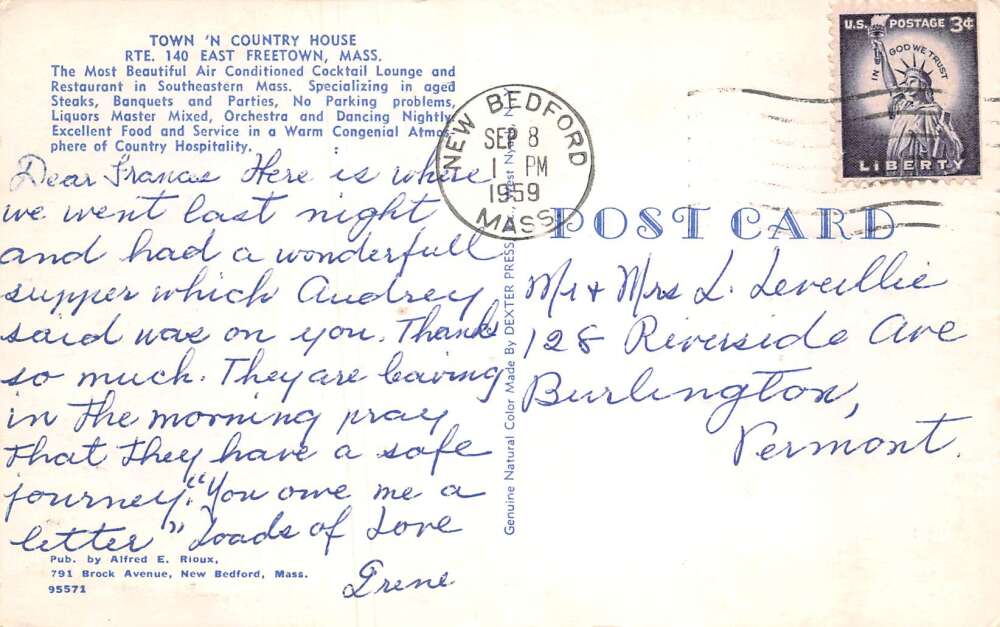 TOWN 'N COUNTRY HOUSE
RTE. 140 EAST FREETOWN, MASS.
The Most Beautiful Air Conditioned Cocktail Lounge and
Restaurant in Southeastern Mass. Specializing in aged
Steaks, Banquets and Parties, No Parking problems,
Liquors Master Mixed, Orchestra and Dancing Nightly
Excellent Food and Service in a Warm Congenial Atmos-
phere of Country Hospitality.
Dear Frances Here is where
we went last night
and had a wonderfull
supper which Audrey
said was on you. Thanks
so much. They are leaving
in the morning pray
that they have a safe
journey. "You owe me a
letter" Loads of Love
Irene
Pub. by Alfred E. Rioux,
791 Brock Avenue, New Bedford, Mass.
95571
Genuine Natural Color Made By DEXTER PRESS
est Ny
NEW BEDFORD
SEP 8
1 PM
1959
MASS
U.S. POSTAGE 3¢
IN GOD WE TRUST
LIBERTY
POST CARD
Mr + Mrs L. Leveillie
128 Riverside Ave
Burlington,
Vermont.